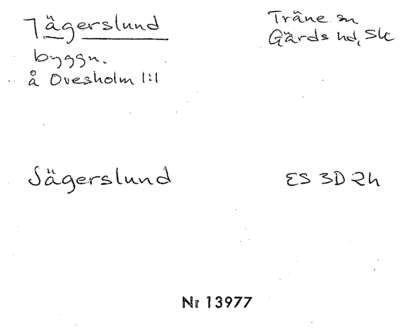 Jägerslund
Träne sn
Gärds hd, Sk
byggn.
å Ovesholm 1:1
Jägerslund
ES 3D 2h
Nr 13977